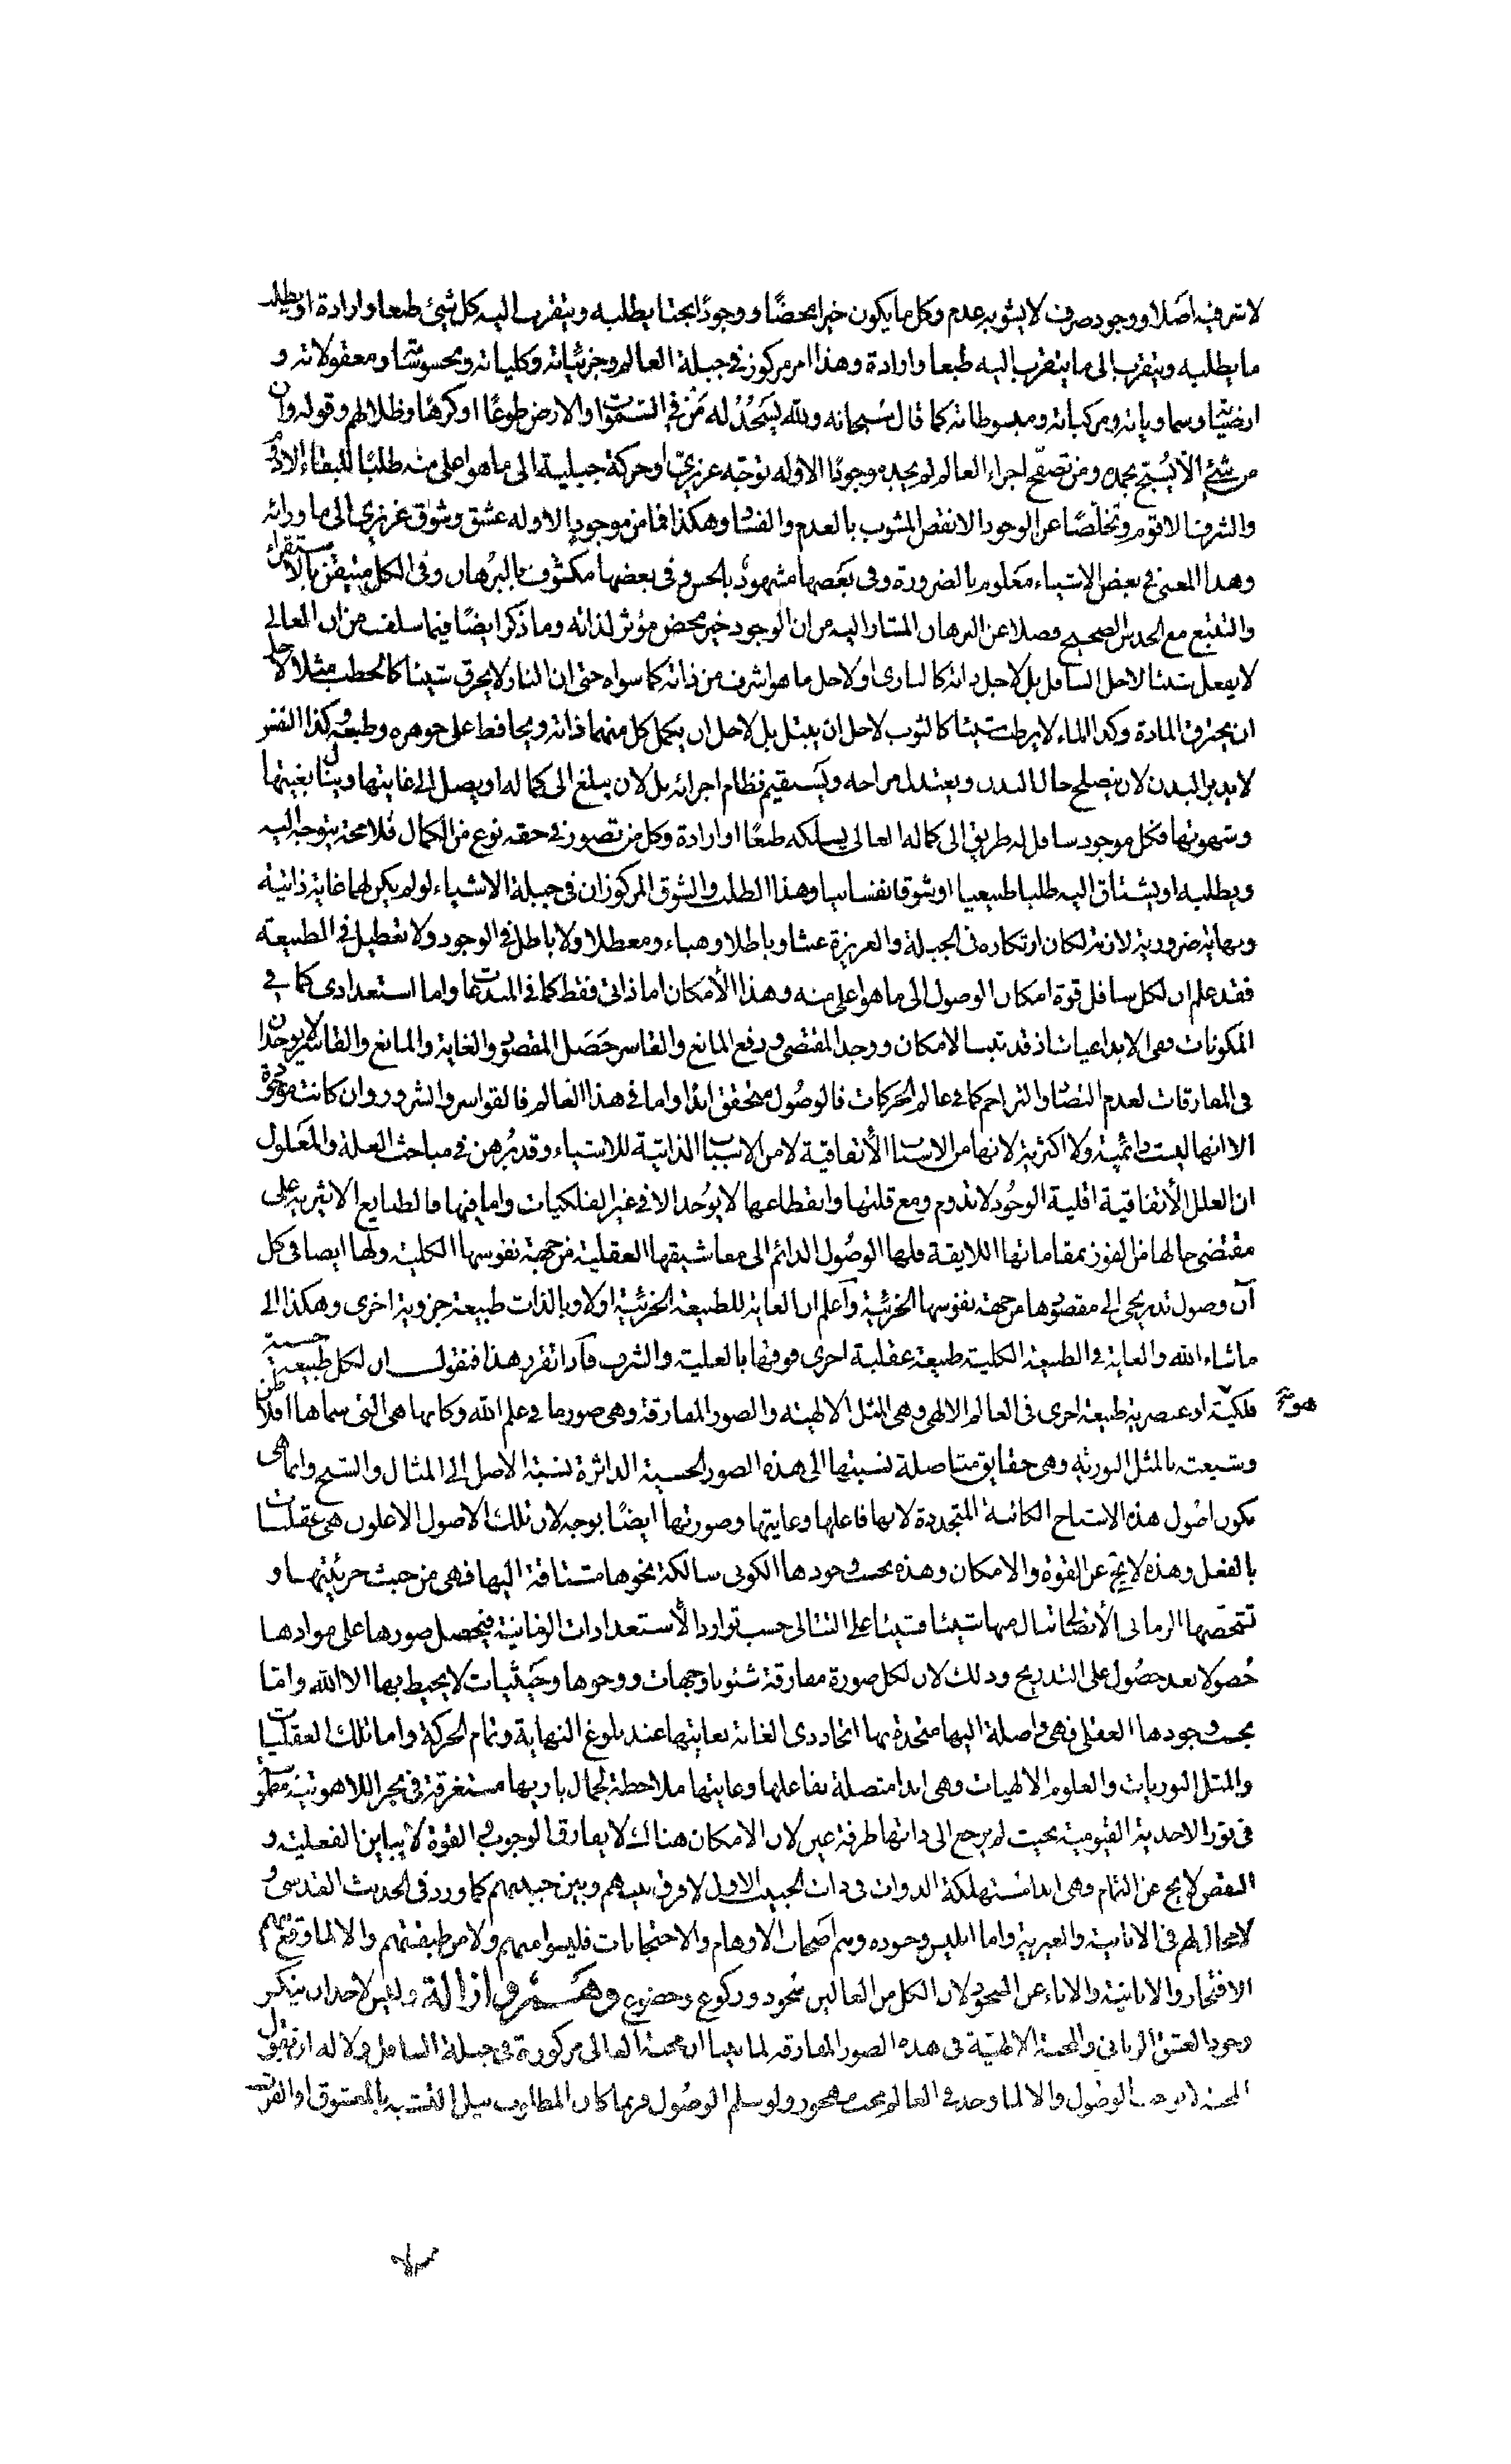 لا شر فيه اصلا ووجود صرف لا يشوبه عدم وكل ما يكون خيرا محضًا ووجودًا بحتا يطلبه ويتقرب اليه كل شيئ طبعا وارادة او يطلب
ما يطلبه ويتقرب الى ما يتقرب اليه طبعا وارادة وهذا امر مركوز في جبلة العالم وجزئياته وكلياته ومحسوساته ومعقولاته و
ارضياته وسماوياته ومركباته ومبسوطاته كما قال سبحانه ولله يسجُدُ له مَنْ في السموات والارض طوعًا او كرهًا وظلالهم وقوله وان
من شيئ الّا يُسبّح بحمده ومن تصفّح اجزاء العالم لم يجد موجودًا الا وله توجّه غريزيّ او حركة جبلية الى ما هو اعلى منه طلبًا للبقاء الادوم
والشرف الاقوم وتخلّصًا عن الوجود الانقص المشوب بالعدم والفساد وهكذا فما من موجودٍ الا وله عشق وشوق غريزي الى ما ورائه
وهذا المعنى في بعض الاشياء معلوم بالضرورة وفى بعضها مشهودٌ بالحس وفى بعضها مكشوف بالبرُهان وفى الكل متيقن بالاستقراء
والتتبع مع الحدس الصحيح فضلا عن البرهان المشار اليه من ان الوجود خير محض مؤثر لذاته وما ذكر ايضًا فيما سلف من ان العالي
لا يفعل شيئا لاجل السافل بل لاجل ذاته كالبارى او لاجل ما هو اشرف من ذاته كما سواه حتى ان النار لا يحرق شيئا كالحطب مثلا لاجل
ان يحترق المادة وكذا الماء لا يرطب شيئا كالثوب لاجل ان يبتل بل لاجل ان يكمل كل منهما ذاته ويحافظ على جوهره وطبعه وكذا النفس
لا يدبر البدن لان يصلح حال البدن ويعتدل مزاجه ويَستقيم نظام اجزائه بل لان يبلغ الى كماله او يصل الى غايتها وينال بغيتها
وشهوتها فكل موجود سافل له طريق الى كماله العالى يسلكه طبعًا او ارادة وكل من تصور في حقه نوع من الكمال فلا محة يتوجه اليه
ويطلبه او يشتاق اليه طلبا طبيعيا او شوقا نفسانيا وهذا الطلب والشوق المركوزان في جبلة الاشياء لو لم يكن لهما غاية ذاتية
ونهاية ضرورية لازمة لكان ارتكازه في الجبلة والغريزة عبثا وباطلا وهباء ومعطلا ولا باطل في الوجود ولا تعطيل في الطبيعة
فقد علم ان لكل سافل قوة امكان الوصول الى ما هو اعلى منه وهذا الأمكان اما ذاتى فقط كما فى المبدعات واما استعدادى كما في
المكونات وفى الابداعيات اذ قد تبت الامكان ووجد المقتضى ورفع المانع والقاسر حَصَل المقصود والغاية والمانع والقاسر لا يوجدان
فى المفارقات لعدم التضاد والتزاحم كما في عالم الحركات فالوصُول متحقق ابدًا واما فى هذا العالم فالقواسر والشرور وان كانت موجودة
الا انها ليست دائمية ولا اكثرية لانها من الاسباب الأتفاقية لا من الاسباب الذاتية للاشياء وقد بُرهن في مباحث العلة والمعلول
ان العلل الأتفاقية اقلية الوجُود لا تدوم ومع قلتها وانقطاعها لا يوُجد الا في غير الفلكيات واما فيها فالطبايع الاثيرية على
مقتضى حالها من الفوز بمقاماتها اللايقة فلها الوصُول الدائم الى معاشيقها العقلية من جهة نفوسها الكلية ولها ايضا فى كل
آن وصول تدريجى الى مقصودها من جهة نفوسها الجزئية وآعلم ان الغاية للطبيعة الجزئية اولا وبالذات طبيعة جزوية اخرى وهكذا الى
ما شاء الله والغاية في الطبيعة الكلية طبيعة عقلية اخرى فوقها بالعلية والشرف فآذا تقرر هذا فنقول ان لكل طبيعة حسية
فلكيّة او عنصرية طبيعة اخرى فى العالم الالهى وهى المثل الالهية والصور المفارقة وهى صور ما في علم الله وكانها هى التى سماها افلاطن
وشيعته بالمثل النورية وهى حقايق متاصلة نسبتها الى هذه الصور الحسية الداثرة نسبة الاصل الى المثال والشبح وانما هى
يكون اصُول هذه الاشباح الكائنة المتجددة لانها فاعلها وغايتها وصورتها ايضًا بوجه لان تلك الاصول الاعلون هى عقليات
بالفعل وهذه لا يخ عن القوة والامكان وهذه بحسب وجودها الكونى سالكة نحوها مشتاقة اليها فهى من حيث جزئيتها و
تشخصها الزمانى
حُصولا بعد حصُول على التدريج وذلك لان لكل صورة مفارقة شئونا وجهات ووجوها وحَيثيات لا يحيط بها الا الله وامّا
بحسب وجودها العقلى فهى واصلة اليها متحدة بها اتحاد ذى الغاية بغايتها عند بلوغ النهاية وتمام الحركة واما تلك العقليات
والمثل النوريات والعلوم الالهيات وهى ابدا متصلة بفاعلها وغايتها ملاحظة لجمال باريها مستغرقة في بحر اللاهوتية مطموسة
فى نور الاحدية القيومية بحيث لم يرجع الى ذاتها طرفة عين لان الامكان هناك لا يفارق الوجوب والقوة لا يباين الفعلية و
النقص لا يخ عن التمام وهى ابدا مُستهلكة الذوات فى ذات الحبيب الاول لا فرق بينهم وبين حبيبهم كما ورد فى الحديث القدسى و
لا مجال لهم فى الانانية والغيرية واما ابليس وجنوده وهم اصَحاب الاوهام والاحتجابات فليسوا منهم ولا من طبقتهم والا لما وقع منهم
الافتخار والانانية والاباء عن السجود لان الكل من العالين سُجود وركوع وخضوع وهـــم وازالة وليس لاحد ان ينكر
وجود العشق الربانى والمحبة الالهيّة فى هذه الصور المفارقة لما بينا ان محبة العالى مركوزة فى جبلة السافل
المحبة لا يوجب الوصُول والا لما وجد في العالم محب مهجور ولو سلم الوصُول فربما كان المطلوب نيل التشبه بالمعشوق او القرب